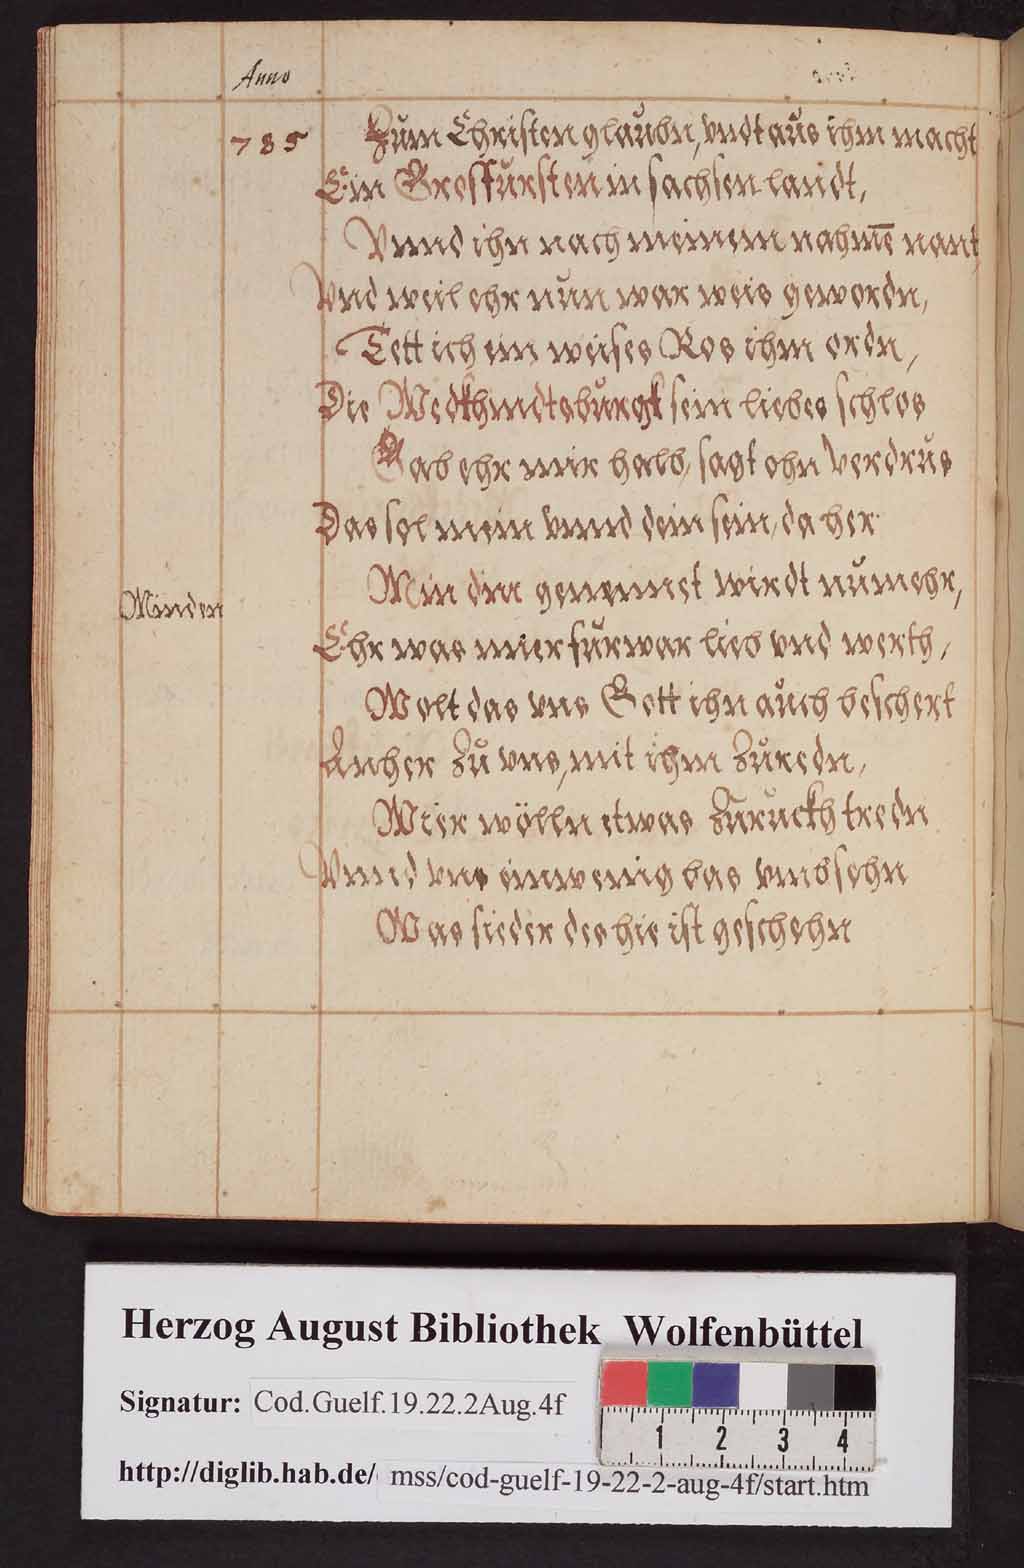 Anno
785
Zum Christen glaubn, vndt aus ihm macht
Ein Grosfursten in sachsen landt,
Vnnd ihn nach meinem nahmē nant
Vnd weil ehr nun war weis gewordn,
Tett ich ein weises Ros ihm ordn,
Die Wedkhindtsburgk sein liebes schlos
Gab ehr mir halb, sagt ohn verdrus
Das sol mein vnnd dein sein, da her
Minden
Min din genennet wirdt numehr,
Ehr was mier furwar lieb vnd werth,
Wolt das vns Gott ihn auch beschert
Anher zu vns, mit ihm zuredn,
Wier wölln etwas zuruckh tredn
Vnnd vns einwenig bas vmbsehn
Was sieder des hie ist geschehn
Herzog August Bibliothek Wolfenbüttel
Signatur: Cod.Guelf.19.22.2Aug.4f
1 2 3 4
http://diglib.hab.de/ mss/cod-guelf-19-22-2-aug-4f/start.htm